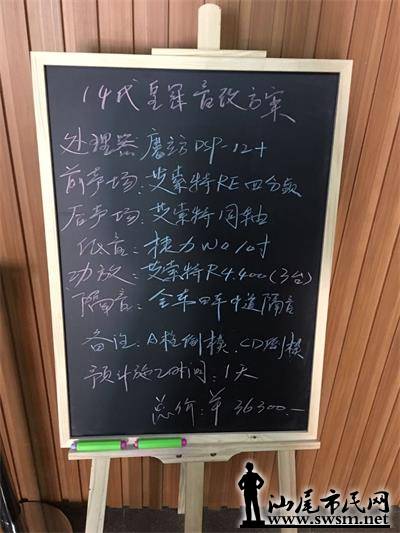 14代皇冠音改方案
处理器:魔立方DSP-12+
前声场:艾索特RE四分频
后声场:艾索特同轴
低音:捷力W0 10寸
功放:艾索特R4.400(3台)
隔音:全车四车门道隔音
备注:A柱倒模.CD倒模
预计施工时间:1天
总价:单 36300.—
汕尾市民网
www.swsm.net